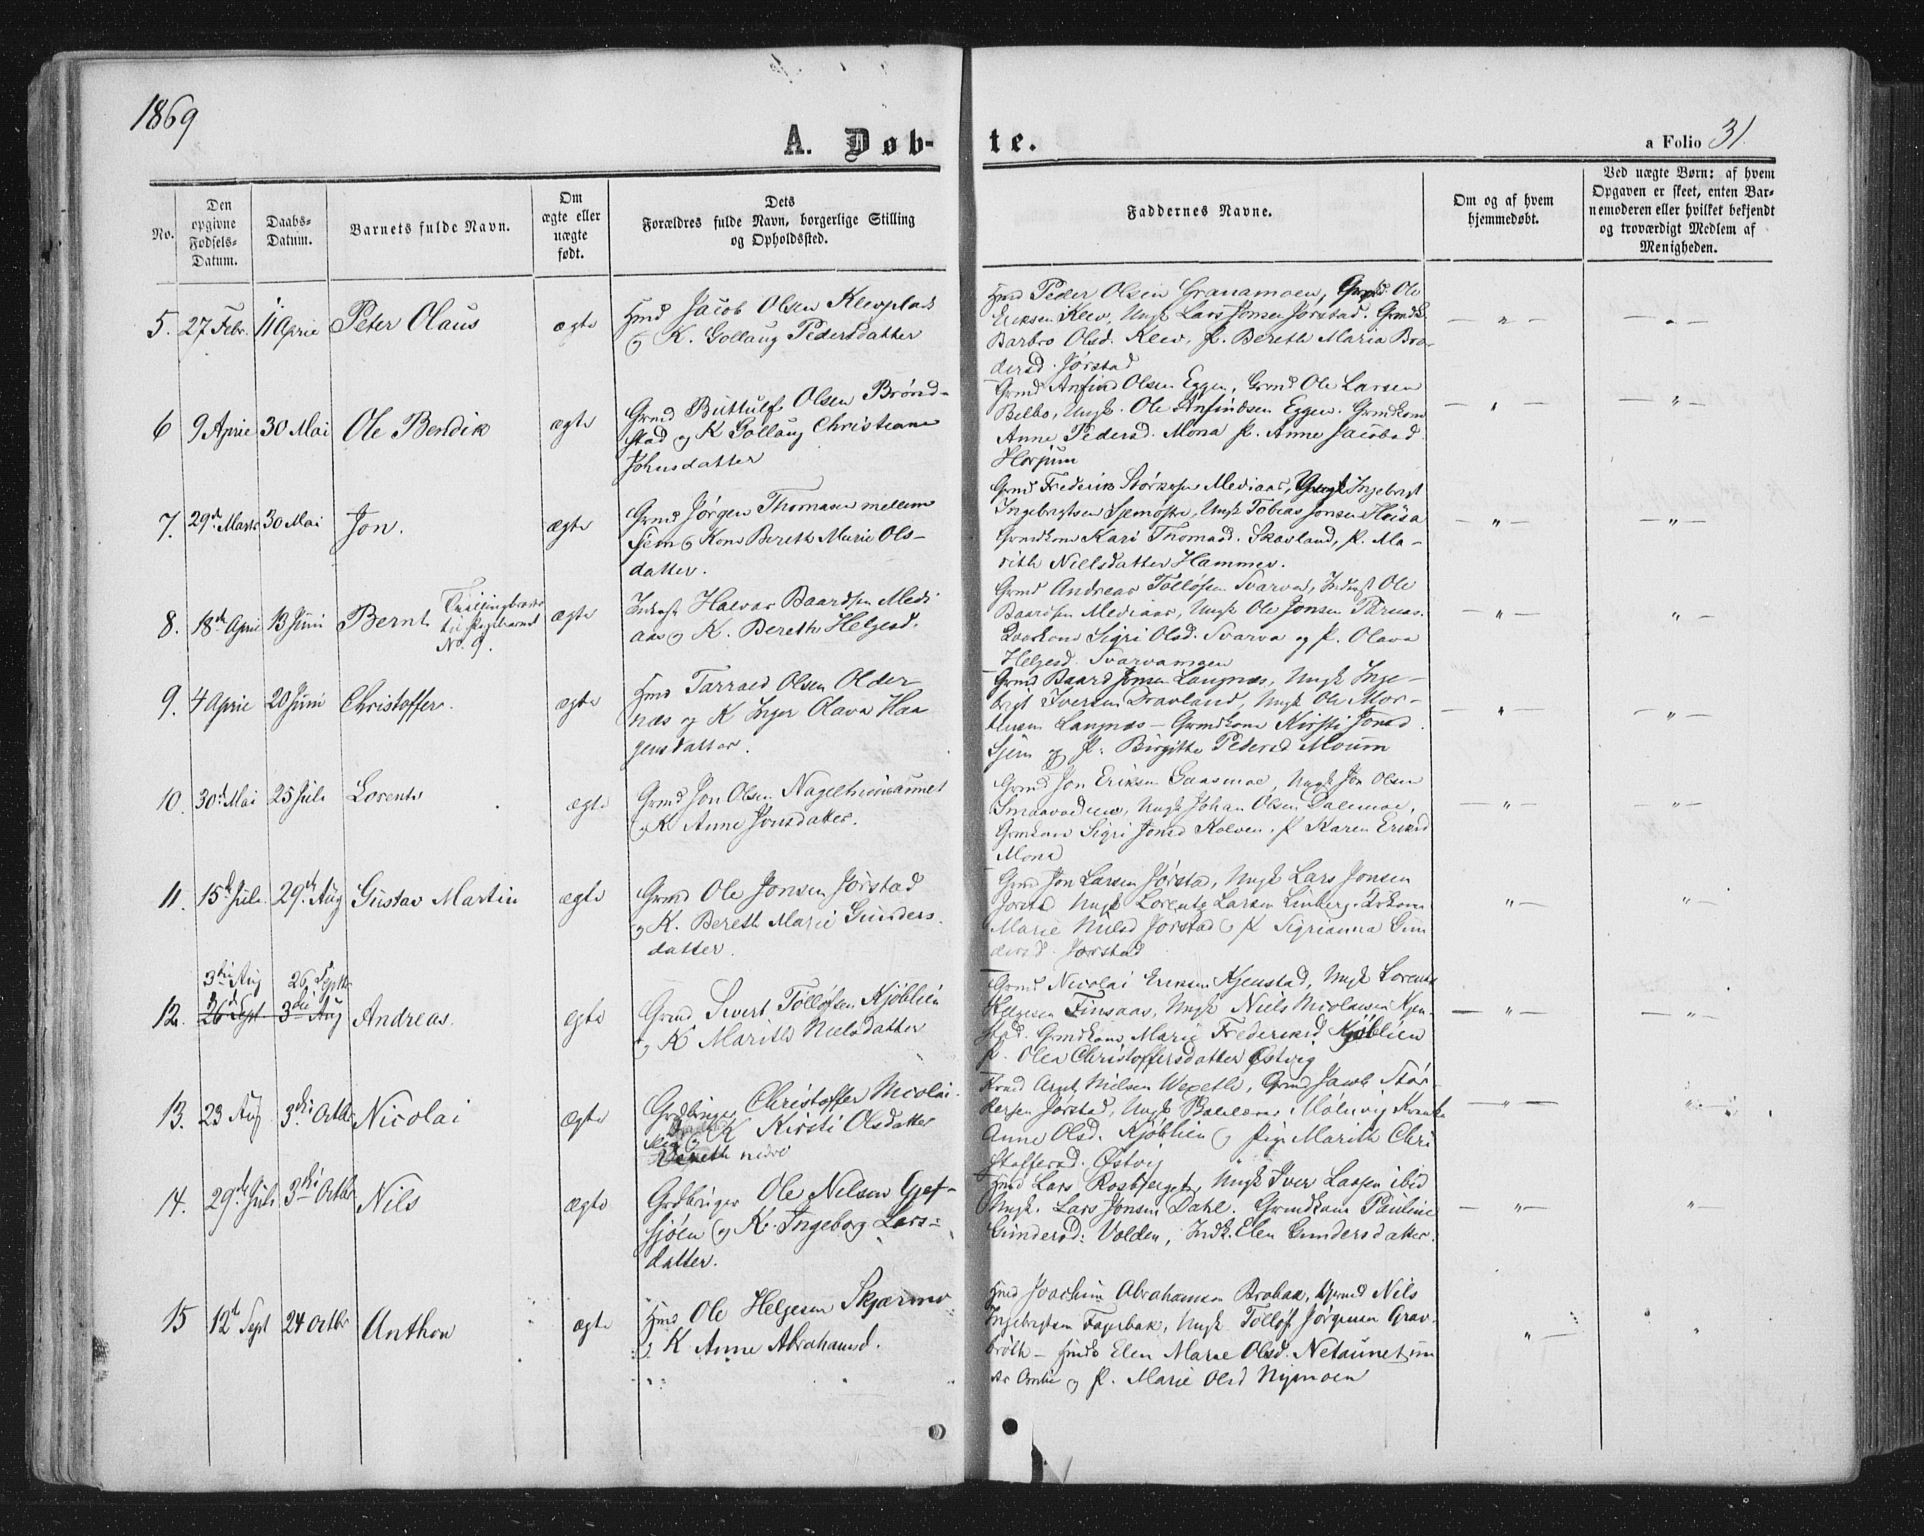 1869
A. Døb-
te.
a Folio 31.
No.
Den opgivne Fødsels-Datum.
Daabs-Datum.
Barnets fulde Navn.
Om ægte eller uægte født.
Dets Forældres fulde Navn, borgerlige Stilling og Opholdssted.
Faddernes Navne.
Om og af hvem hjemmedøbt.
Ved uægte Børn: af hvem Opgaven er skeet, enten Barnemoderen eller hvilket bekjendt og troværdigt Medlem af Menigheden.
5. 27 Febr. 11 April Peter Olaus ægte
Hmd Jacob Olsen Klevplads
og K. Gollaug Pedersdatter
Hmd Peder Olsen Granamoen, Grmd. Ole
Eriksen Klev, Ungk Lars Jonsen Jørstad. Grmdk
Barbro Olsd. Klev, P. Bereth Maria Bro-
dersd. Jørstad
6 9 April 30 Mai Ole Bendik ægte
Grmd Buttulf Olsen Brønd-
stad og K Gollaug Christiane
Johnsdatter
Grmd Anfind Olsen Eggen, Grmd Ole Larsen
Belbo, Ungk. Ole Anfindsen Eggen. Grmdkone
Anne Pedersd. Mona P. Anne Jacobsd.
Horjum
7. 29d Marts 30 Mai Jon. ægte
Grmd Jørgen Thomasen mellem
Sem og Kone Bereth Marie Ols-
datter.
Grmd Frederik Størksen Mediaas, Ungk Ingebrigt
Ingebrigtsen Semostre, Ungk Tobias Jonsen
Grmdkone Kari Thomasd. Skavland, P. Ma-
rith Nielsdatter Hammer.
8. 18d April 13 Juni Bernt
No. 9.
ægte
Inderst Halvor Baardsen Medi
aas og K. Bereth Helgesd.
Grmd Andreas Tølløfsen Svarva, Inderst Ole
Baardsen Mediaas, Ungk Ole Jonsen
Sigri Olsd. Svarva og P. Olava
Helgesd. Svarvamoen
9. 4 April 20 Juni Christoffer. ægte
Hmd Tarrald Olsen Older-
næs og K Inger Olava Haa
gensdatter.
Grmd Baard Jonsen Langnæs, Ungk Inge-
brigt Iversen Dravland, Ungk Ole Mor-
tensen Langnæs – Grmdkone Kirsti Jonsd.
Sjem og P. Birgitte Pedersd Moum
10. 30d Mai 25 Juli Lorents ægte
Grmd Jon Olsen Nageltrimannet
og K Anne Jonsdatter.
Grmd Jon Eriksen Gaasmoe, Ungk Jon Olsen
Ungk Johan Olsen Dalemoe,
Grmkone Sigri Jonsd Kolven. P Karen Eriksd
Mona
11. 15d Juli 29d Aug Gustav Martin ægte
Grmd Ole Jonsen Jørstad
og K. Bereth Marie Gunders-
datter.
Grmd Jon Larsen Jørstad, Ungk Lars Jonsen
Jørstad Ungk Lorents Larsen Linberg.
Marie Nilsd Jørstad og P Sigrianna Gun
dersd. Jørstad
3die Aug 26 Septbr
12. 26d Sept. 3die Aug Andreas. ægte
Grmd Sivert Tølløfsen Kjøblien
og K Marith Nielsdatter
Grmd Nicolai Eriksen Kjenstad, Ungk Lorents
Helgesen Finsaas, Ungk Niels Nicolaisen Kjen-
stad. Grmdkone Marie Frederiksd. Kjøblien
P. Olea Christoffersdatter Østvig
13. 23 Aug 3die Octbr Nicolai ægte
Grdbruger Christoffer Nicolai-
K Kirsti Olsdatter
nedre
Arnt Nielsen Wepetli, Grmd Jacob Stør-
kersen Jørstad, Ungk Baltzer Mølnvig
Anne Olsd. Kjøblien og Pige Marith Chri
stoffersd. Østvig
14. 29de Juli 3die Octbr Nils ægte
Grdbruger Ole Nilsen Gjef-
sjøen og K. Ingeborg Lars-
datter.
Hmd Lars Rosbjerget, Ungk Iver Larsen ibid
Ungk. Lars Jonsen Dahl. Grmdkone Pauline
Gundersd: Volden, Indk. Elen Gundersdatter.
15 12d Sept 24 Octbr Anthon ægte
Hmd Ole Helgesen Skjærmo
og K Anne Abrahamsd.
Hmd Joachim Abrahamsen Brobak, Grmd Nils
Ingebrigtsen Fagerbak, Ungk Tølløf Jørgensen Grav-
brøth – Hmdk Elen Marie Olsd. Netaunet un
og P. Marie Olsd Nymoen